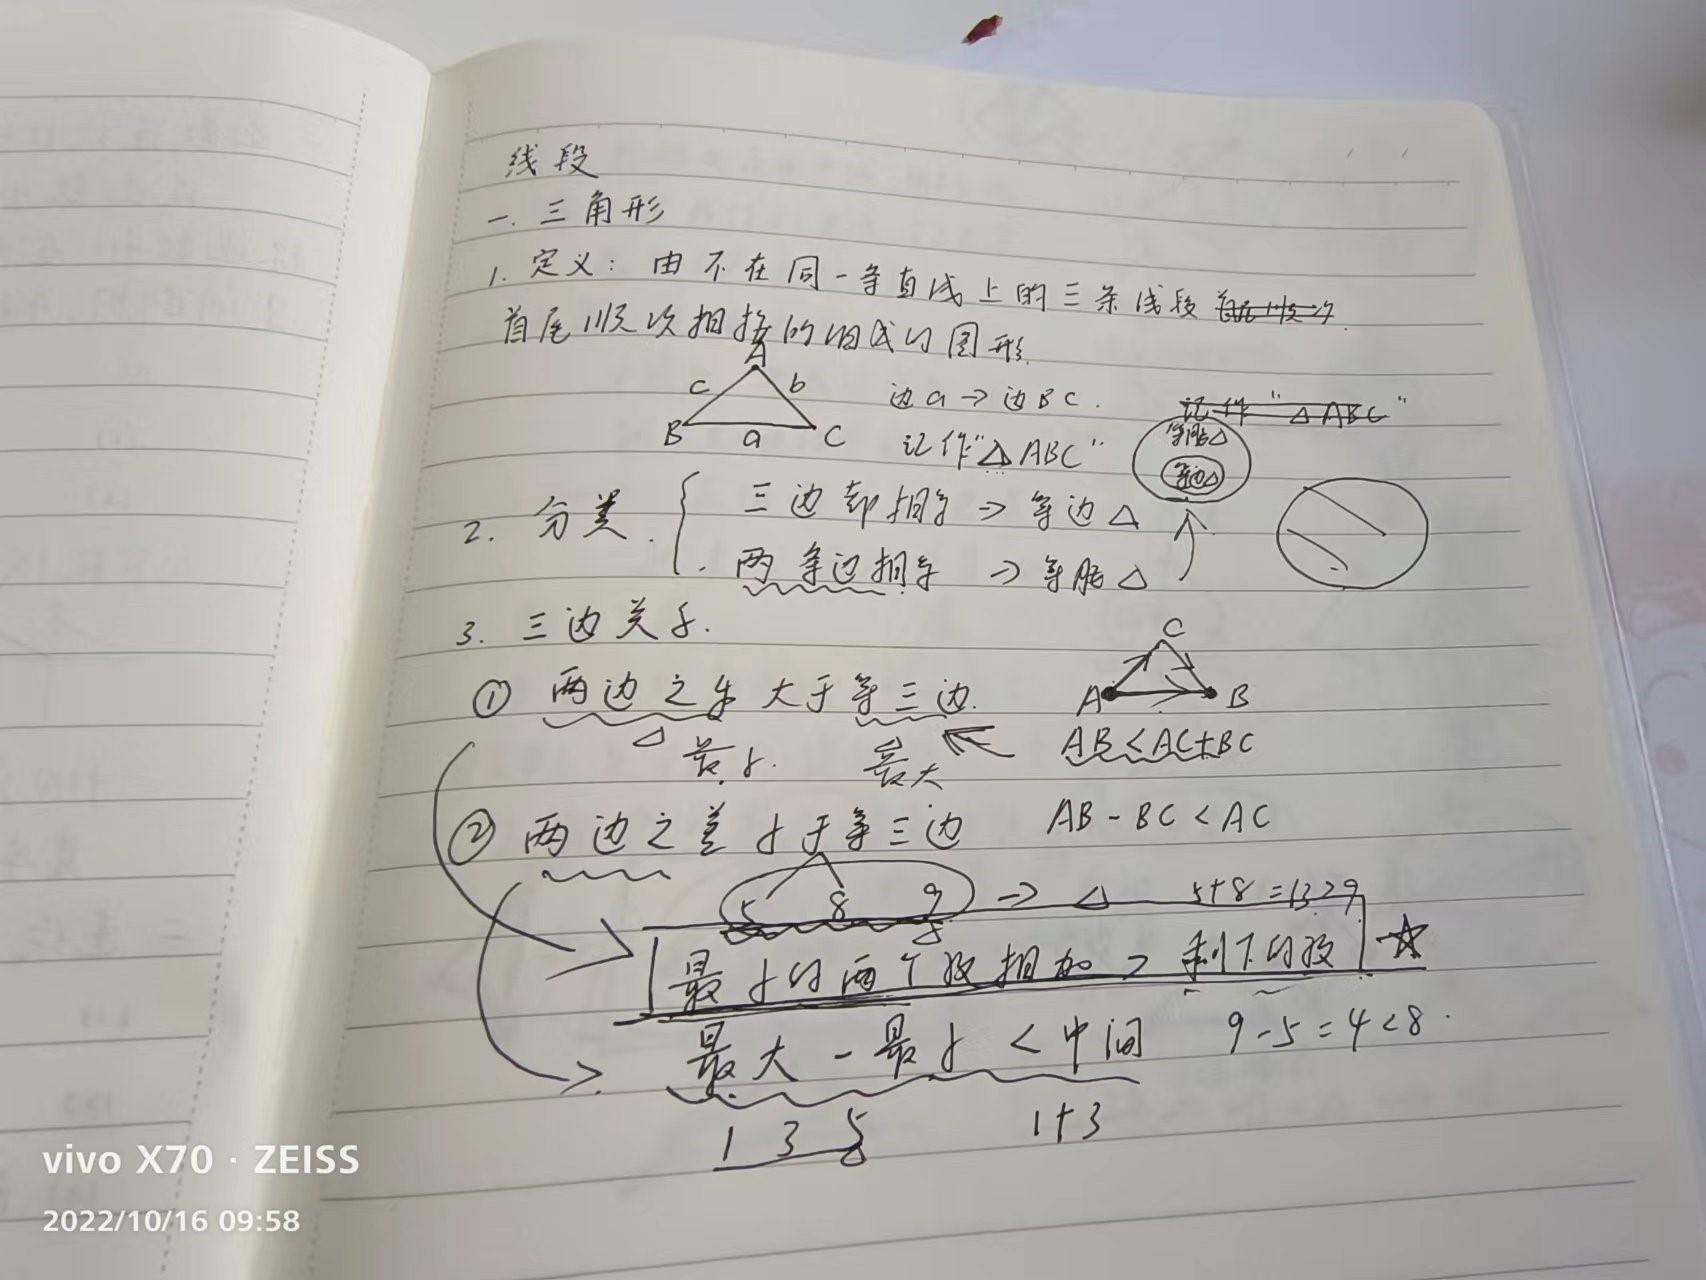 线段
一. 三角形
1. 定义: 由不在同一条直线上的三条线段
首尾顺次相接的组成的图形.
A
c b
B a C
边a→边BC.
记作"△ABC"
记作"△ABC"
等腰△
等边△
2. 分类.
三边都相等→等边△
两条边相等→等腰△
3. 三边关系.
C
A B
① 两边之和大于第三边.
△ 最小. 最大
AB<AC+BC
② 两边之差小于第三边
AB-BC<AC
5 8 9 → △ 5+8=13>9
最小的两个数相加>剩下的数 ☆
最大-最小<中间 9-5=4<8.
1 3 5 1+3
vivo X70 · ZEISS
2022/10/16 09:58